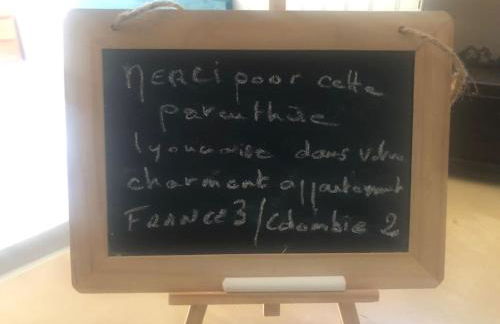 MERCI pour cette
parenthèse
lyonnaise dans votre
charment appartement
FRANCE 3 / Colombie 2